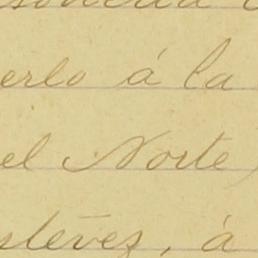 erlo á la
el Norte
stévez, á